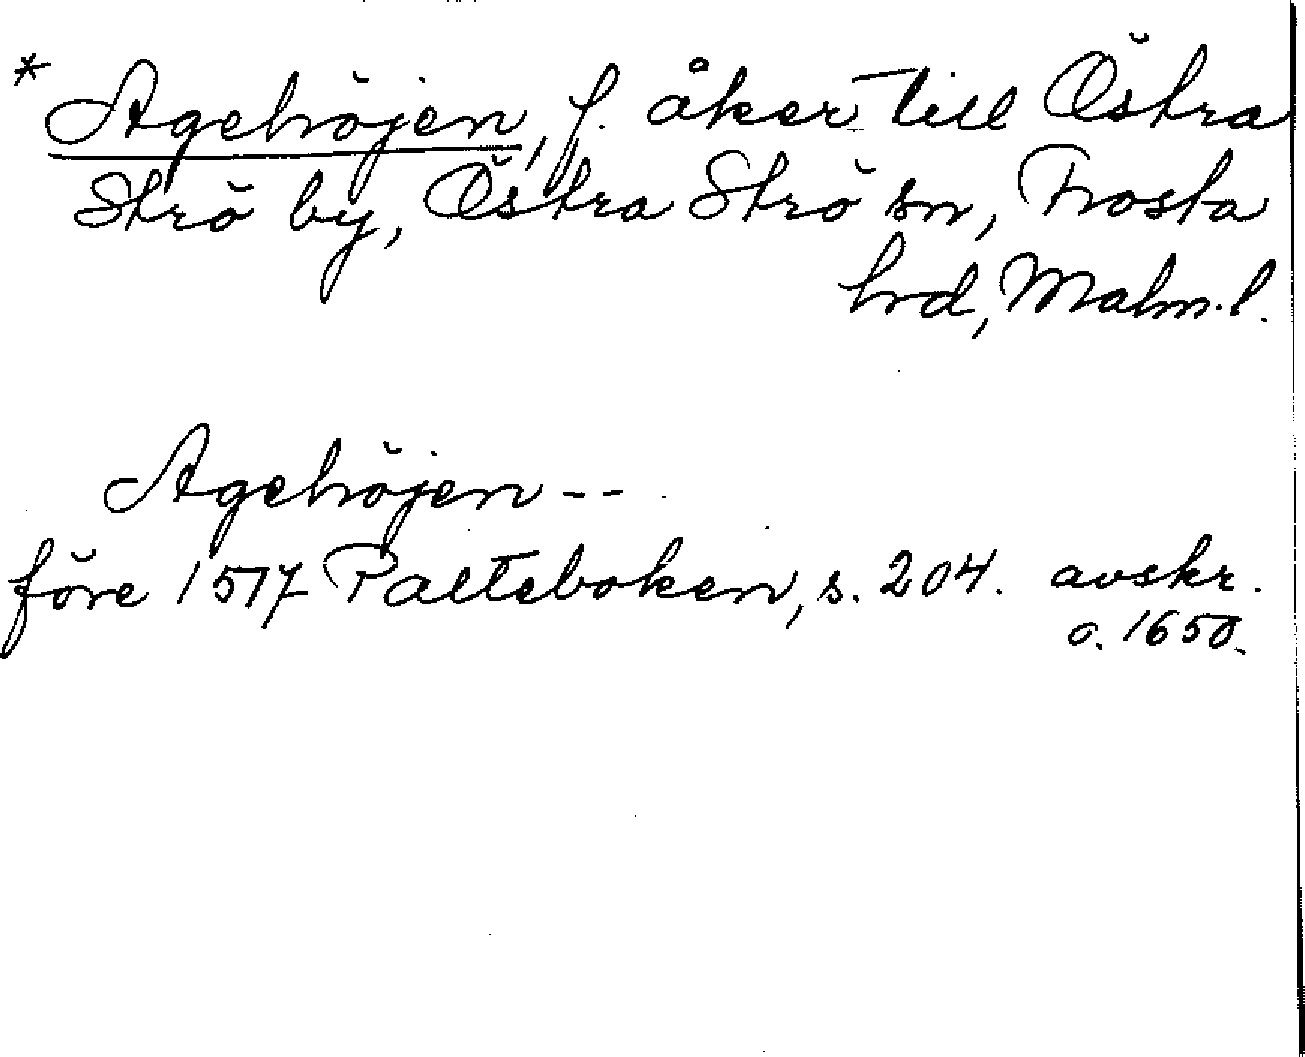 * Agehöjen, f. åker till Östra
Strö by, Östra Strö sn, Frosta
hrd, Malm. l.
Agehöjen --
före 1517 Palteboken, s. 204. avskr.
o. 1650.